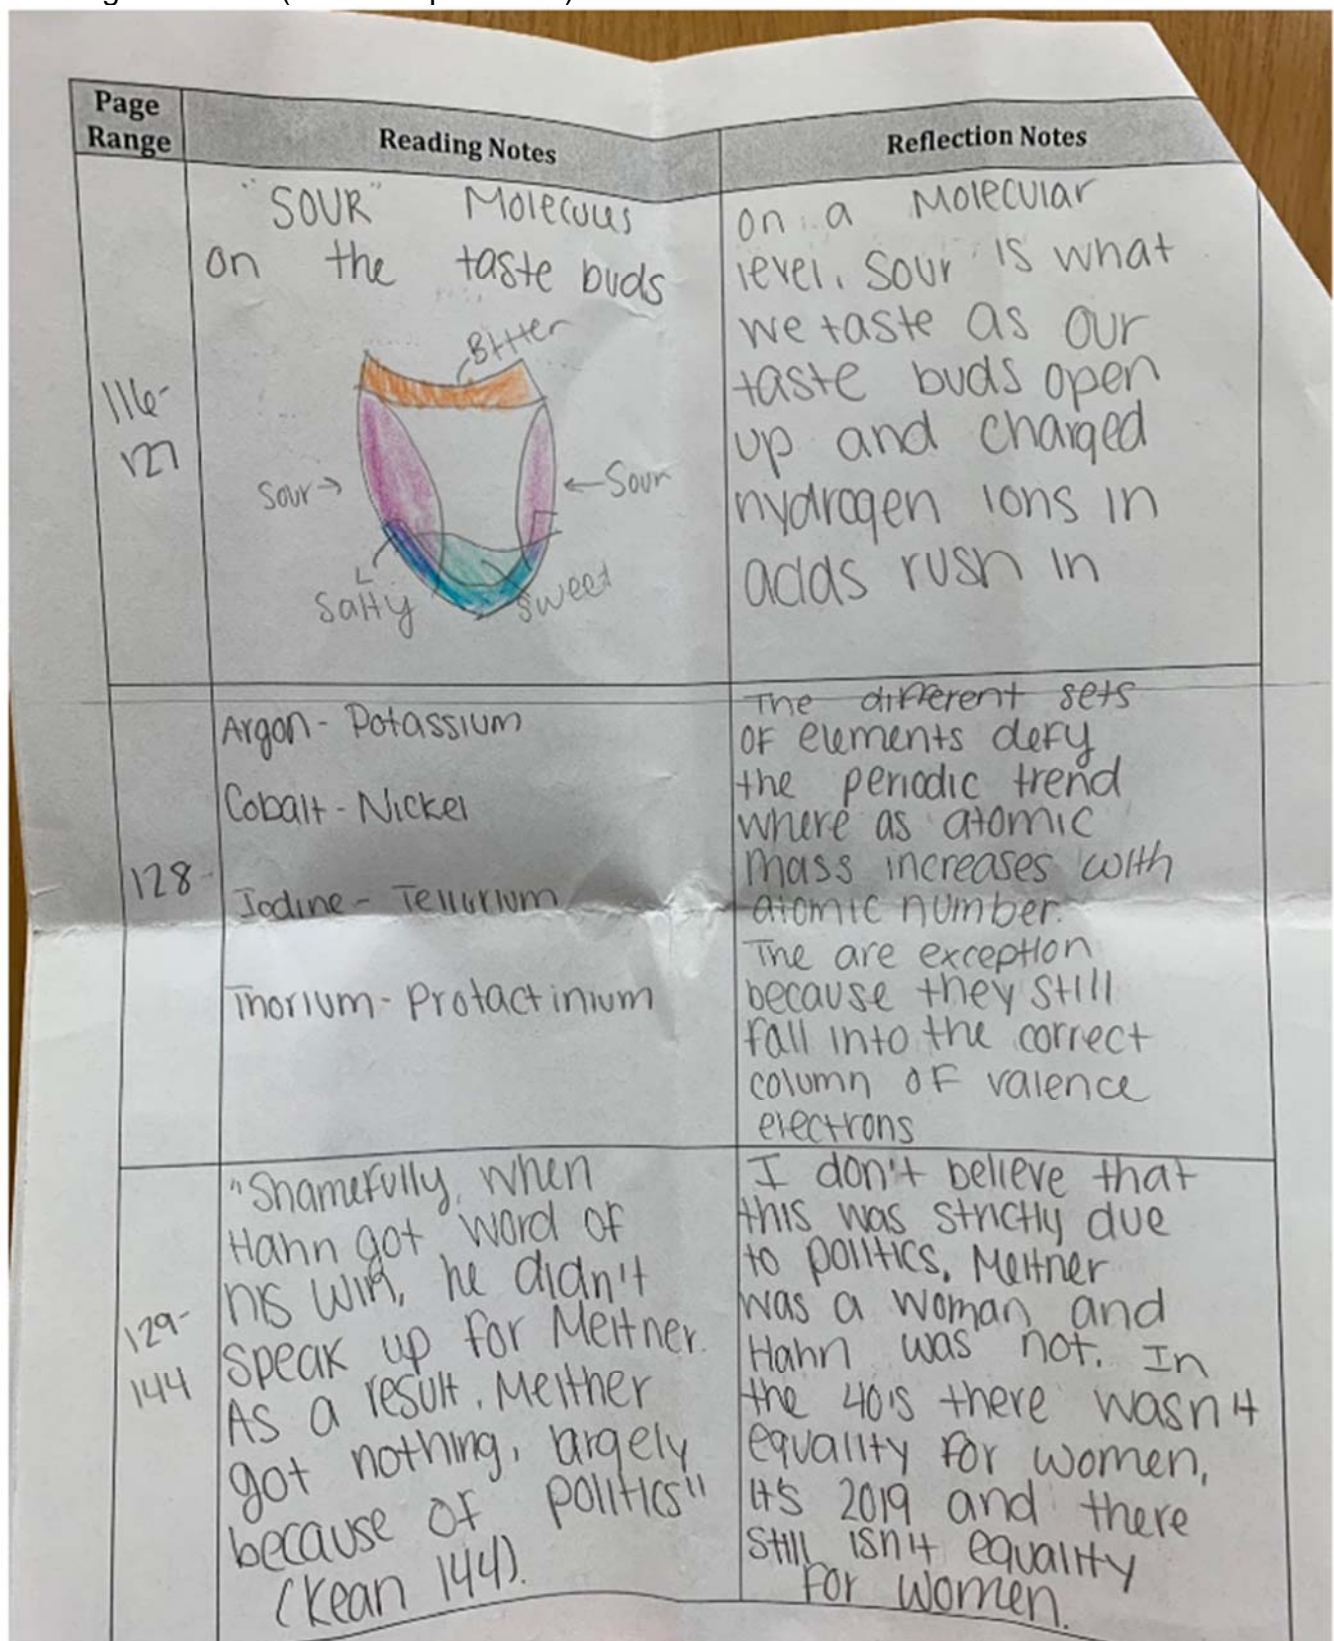 Page
Range
Reading Notes
Reflection Notes
116-
127
"SOUR" Molecuus
on the taste buds
Bitter
Sour→
←Sour
Salty
Sweet
on a Molecular
level. Sour is what
we taste as our
taste buds open
up and charged
hydrogen ions in
acids rush in
128-
Argon - Potassium
Cobalt - Nickel
Iodine - Tellurium
Thorium - Protactinium
The different sets
OF elements defy
the periodic trend
where as atomic
mass increases with
atomic number.
The are exception
because they still
fall into the correct
column OF valence
electrons
129-
144
"Shamefully, when
Hahn got word of
his win, he didn't
speak up for Meitner.
As a result, Meitner
got nothing, largely
because of politics"
(Kean 144).
I don't believe that
this was strictly due
to politics, Meitner
was a woman and
Hahn was not. In
the 40's there wasn't
equality for women,
it's 2019 and there
still isn't equality
for women.